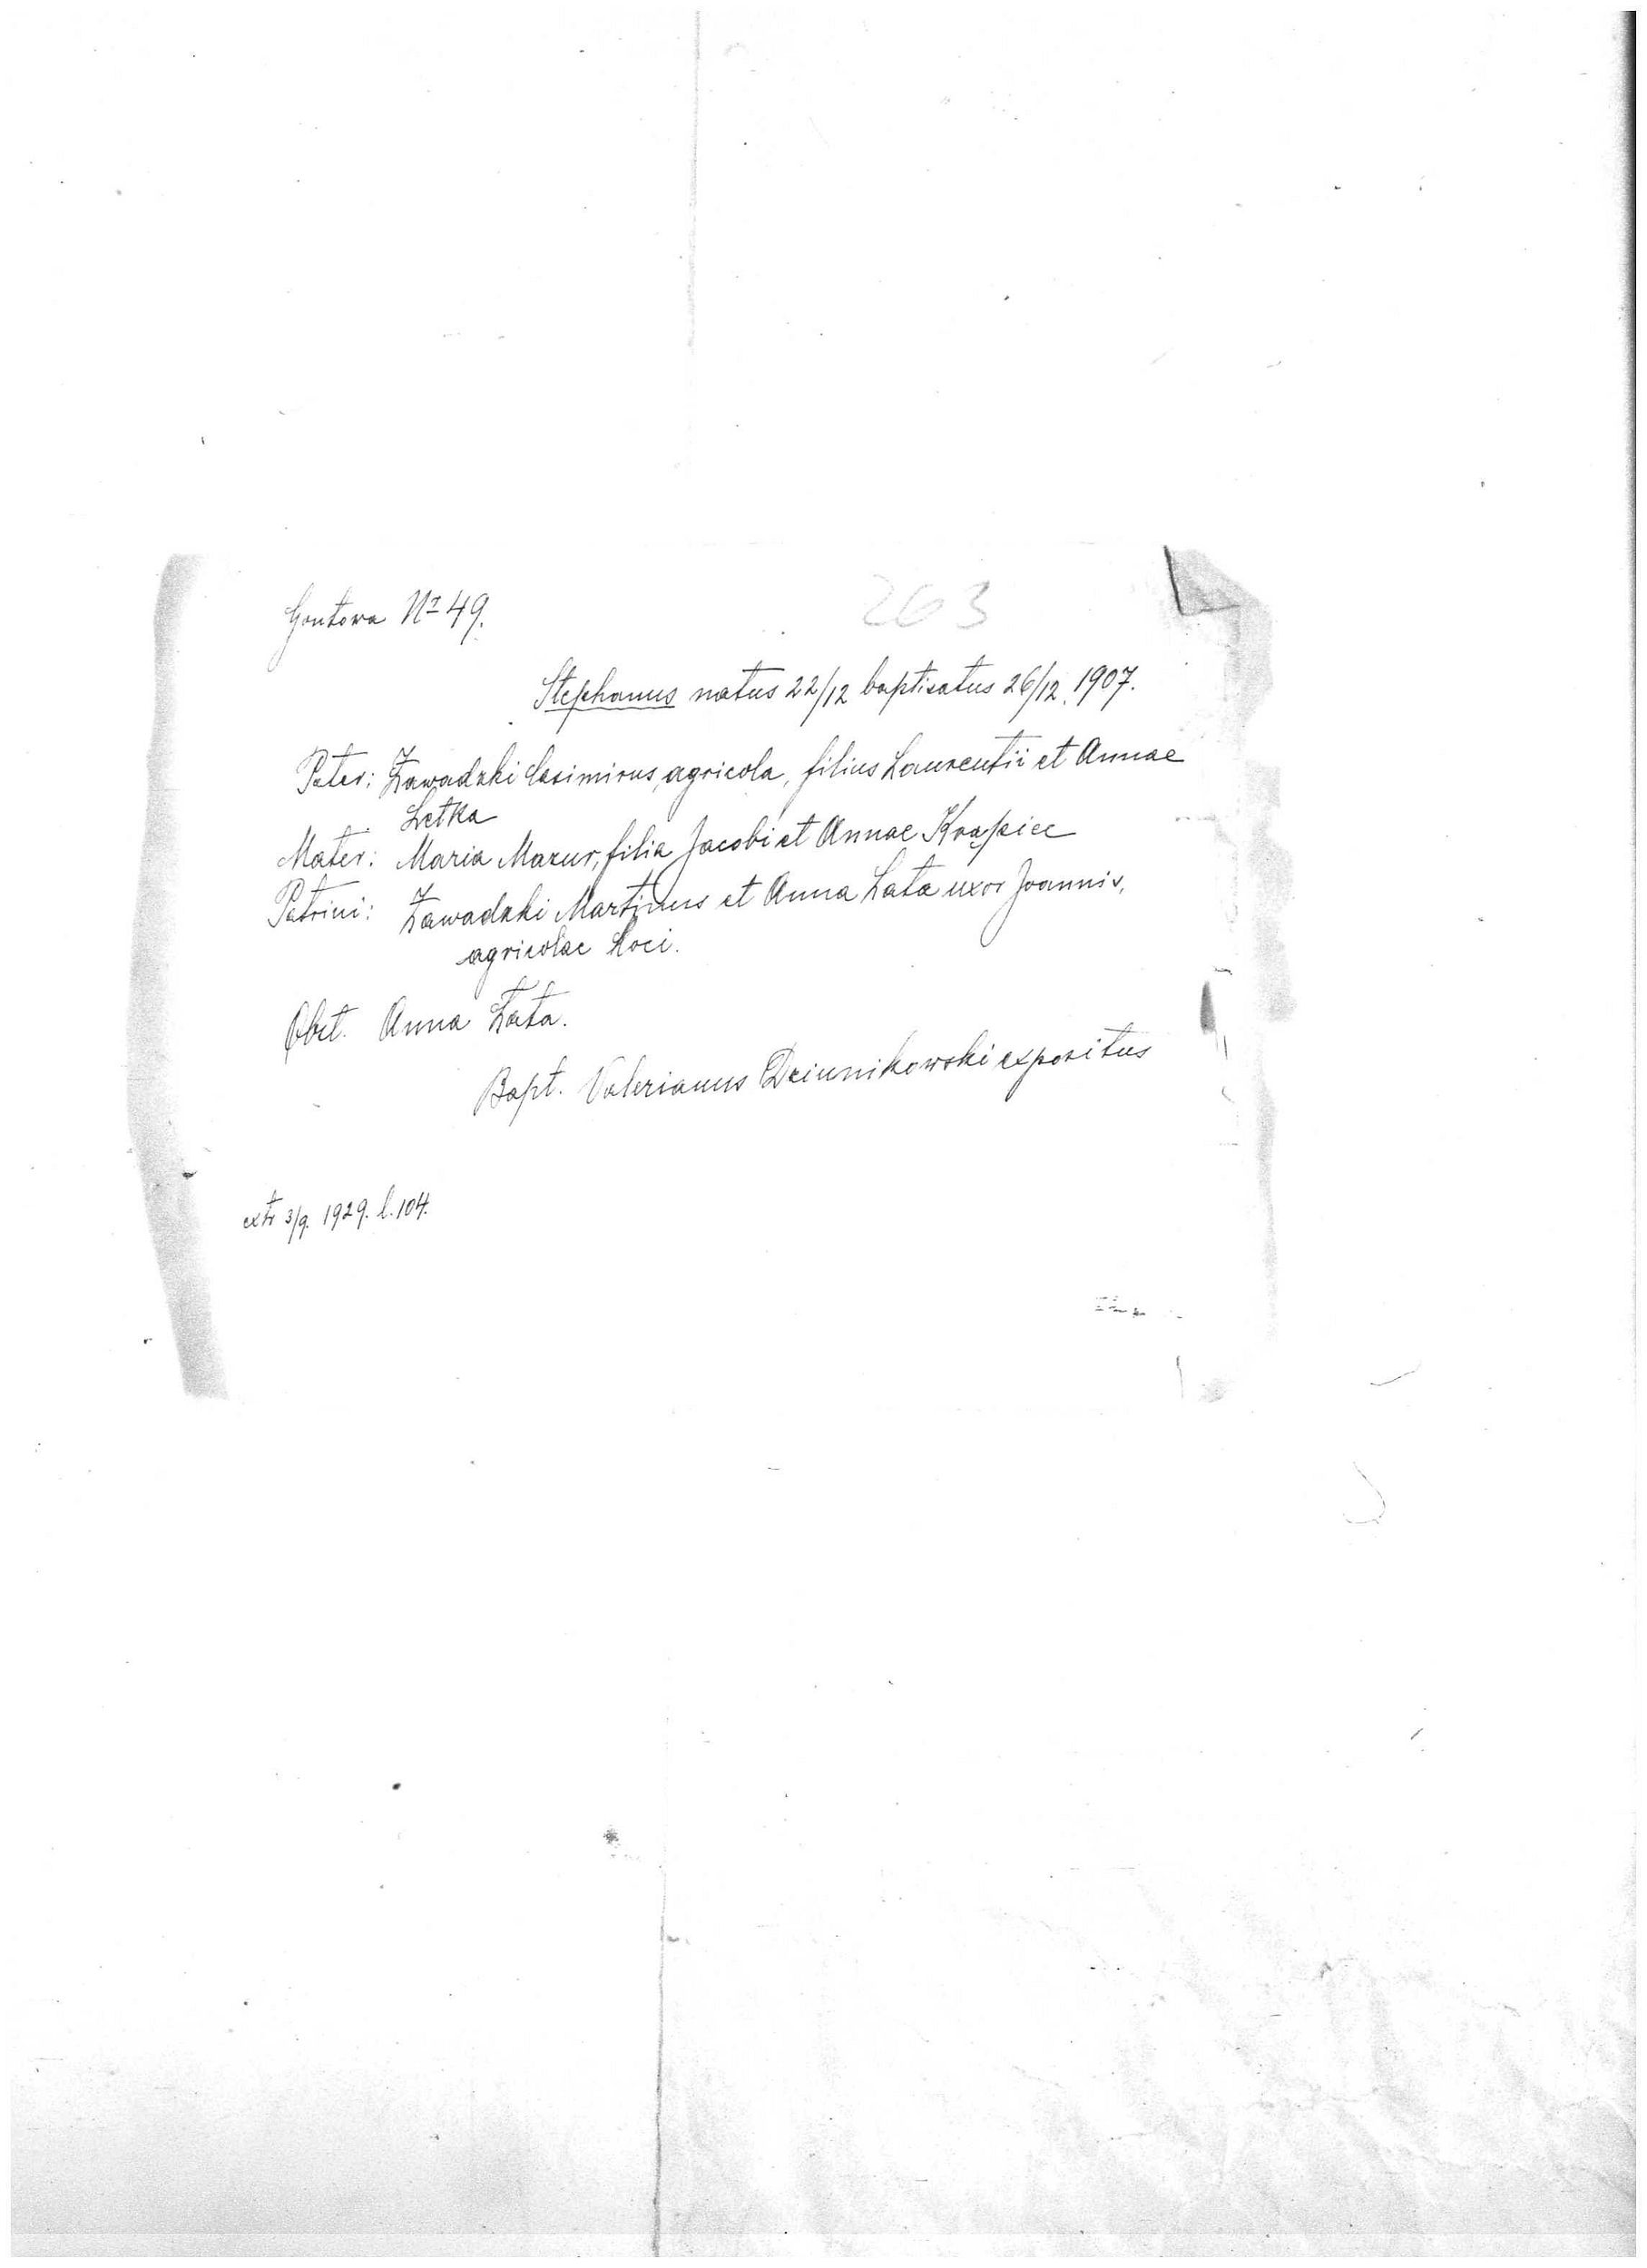 Gontowa Nr 49.
263
Stephanus natus 22/12 baptisatus 26/12. 1907.
Pater: Zawadzki Casimirus, agricola, filius Laurentii et Annae
Letka
Mater: Maria Mazur, filia Jacobi et Annae Krąpiec
Patrini: Zawadzki Martinus et Anna Łata uxor Joannis,
agricolae loci.
Obst. Anna Łata.
Bapt. Valerianus Dziunikowski expositus
extr 3/9. 1929. l. 104.